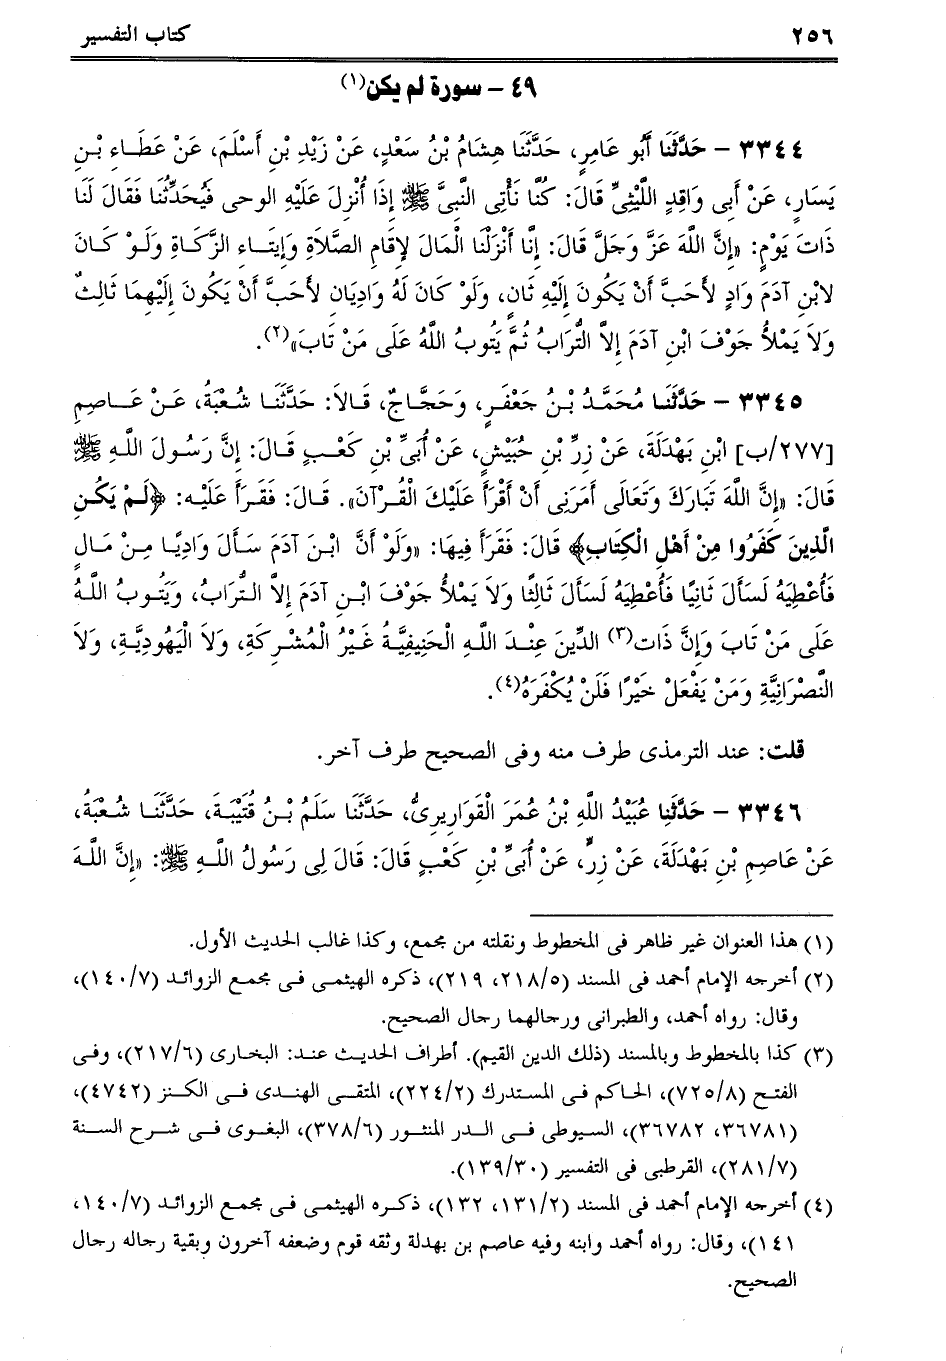 ٢٥٦ كتاب التفسير
٤٩ – سورة لم يكن(١)
٣٣٤٤ – حَدَّثَنَا أَبُو عَامِرٍ، حَدَّثَنَا هِشَامُ بْنُ سَعْدٍ، عَنْ زَيْدِ بْنِ أَسْلَمَ، عَنْ عَطَاءِ بْنِ
يَسَارٍ، عَنْ أَبِى وَاقِدٍ اللَّيْثِىِّ قَالَ: كُنَّا نَأْتِى النَّبِىَّ ﷺ إِذَا أُنْزِلَ عَلَيْهِ الوحى فَيُحَدِّثُنَا فَقَالَ لَنَا
ذَاتَ يَوْمٍ: «إِنَّ اللَّهَ عَزَّ وَجَلَّ قَالَ: إِنَّا أَنْزَلْنَا الْمَالَ لإِقَامِ الصَّلاَةِ وَإِيتَاءِ الزَّكَاةِ وَلَوْ كَانَ
لابْنِ آدَمَ وَادٍ لأَحَبَّ أَنْ يَكُونَ إِلَيْهِ ثَانٍ، وَلَوْ كَانَ لَهُ وَادِيَانِ لأَحَبَّ أَنْ يَكُونَ إِلَيْهِمَا ثَالِثٌ
وَلاَ يَمْلأُ جَوْفَ ابْنِ آدَمَ إِلاَّ التُّرَابُ ثُمَّ يَتُوبُ اللَّهُ عَلَى مَنْ تَابَ»(٢).
٣٣٤٥ – حَدَّثَنَا مُحَمَّدُ بْنُ جَعْفَرٍ، وَحَجَّاجٌ، قَالاَ: حَدَّثَنَا شُعْبَةُ، عَنْ عَاصِمِ
[٢٧٧/ب] ابْنِ بَهْدَلَةَ، عَنْ زِرِّ بْنِ حُبَيْشٍ، عَنْ أُبَىِّ بْنِ كَعْبٍ قَالَ: إِنَّ رَسُولَ اللَّهِ ﷺ
قَالَ: «إِنَّ اللَّهَ تَبَارَكَ وَتَعَالَى أَمَرَنِى أَنْ أَقْرَأَ عَلَيْكَ الْقُرْآنَ». قَالَ: فَقَرَأَ عَلَيْهِ: ﴿لَمْ يَكُنِ
الَّذِينَ كَفَرُوا مِنْ أَهْلِ الْكِتَابِ﴾ قَالَ: فَقَرَأَ فِيهَا: «وَلَوْ أَنَّ ابْنَ آدَمَ سَأَلَ وَادِيًا مِنْ مَالٍ
فَأُعْطِيَهُ لَسَأَلَ ثَانِيًا فَأُعْطِيَهُ لَسَأَلَ ثَالِثًا وَلاَ يَمْلأُ جَوْفَ ابْنِ آدَمَ إِلاَّ التُّرَابُ، وَيَتُوبُ اللَّهُ
عَلَى مَنْ تَابَ وَإِنَّ ذَات(٣) الدِّينَ عِنْدَ اللَّهِ الْحَنِيفِيَّةُ غَيْرُ الْمُشْرِكَةِ، وَلاَ الْيَهُودِيَّةِ، وَلاَ
النَّصْرَانِيَّةِ وَمَنْ يَفْعَلْ خَيْرًا فَلَنْ يُكْفَرَهُ(٤).
قلت: عند الترمذى طرف منه وفى الصحيح طرف آخر.
٣٣٤٦ – حَدَّثَنِا عُبَيْدُ اللَّهِ بْنُ عُمَرَ الْقَوَارِيرِىُّ، حَدَّثَنَا سَلْمُ بْنُ قُتَيْبَةَ، حَدَّثَنَا شُعْبَةُ،
عَنْ عَاصِمِ بْنِ بَهْدَلَةَ، عَنْ زِرٍّ، عَنْ أُبَىِّ بْنِ كَعْبٍ قَالَ: قَالَ لِى رَسُولُ اللَّهِ ﷺ: «إِنَّ اللَّهَ
(١) هذا العنوان غير ظاهر فى المخطوط ونقلته من مجمع، وكذا غالب الحديث الأول.
(٢) أخرجه الإمام أحمد فى المسند (٢١٨/٥، ٢١٩)، ذكره الهيثمى فى مجمع الزوائد (١٤٠/٧)،
وقال: رواه أحمد، والطبرانى ورجالهما رجال الصحيح.
(٣) كذا بالمخطوط وبالمسند (ذلك الدين القيم). أطراف الحديث عند: البخارى (٢١٧/٦)، وفى
الفتح (٧٢٥/٨)، الحاكم فى المستدرك (٢٢٤/٢)، المتقى الهندى فى الكنز (٤٧٤٢)،
(٣٦٧٨١، ٣٦٧٨٢)، السيوطى فى الدر المنثور (٣٧٨/٦)، البغوى فى شرح السنة
(٢٨١/٧)، القرطبى فى التفسير (١٣٩/٣٠).
(٤) أخرجه الإمام أحمد فى المسند (١٣١/٢، ١٣٢)، ذكره الهيثمى فى مجمع الزوائد (١٤٠/٧،
١٤١)، وقال: رواه أحمد وابنه وفيه عاصم بن بهدلة وثقه قوم وضعفه آخرون وبقية رجاله رجال
الصحيح.